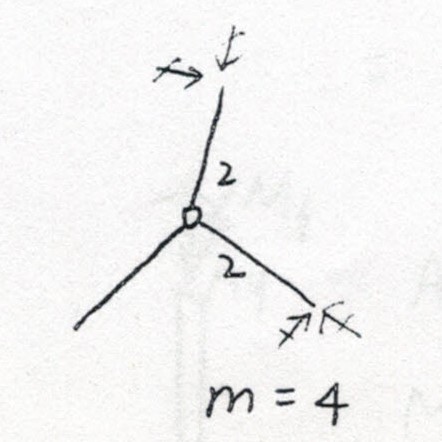 2
2
m = 4